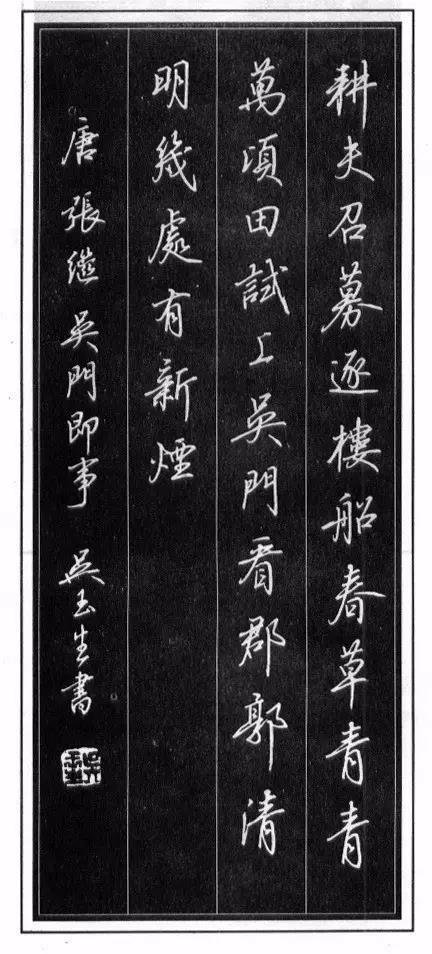 耕夫召募逐樓船春草青青
萬頃田試上吳門看郡郭清
明幾處有新煙
唐 張繼 吳門即事 吳玉生書